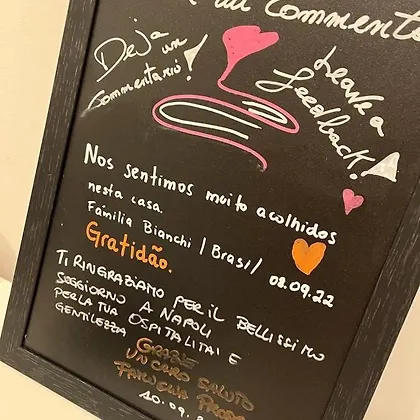 Deja
un
commentario!
Leave a
feedback!
Nos sentimos muito acolhidos
nesta casa.
Família Bianchi | Brasil 08.09.22
Gratidão.
TI RINGRAZIAMO PER IL BELLISSIMO
SOGGIORNO A NAPOLI
PER LA TUA OSPITALITA' E
GENTILEZZA
GRAZIE
UN CARO SALUTO
10.09.2